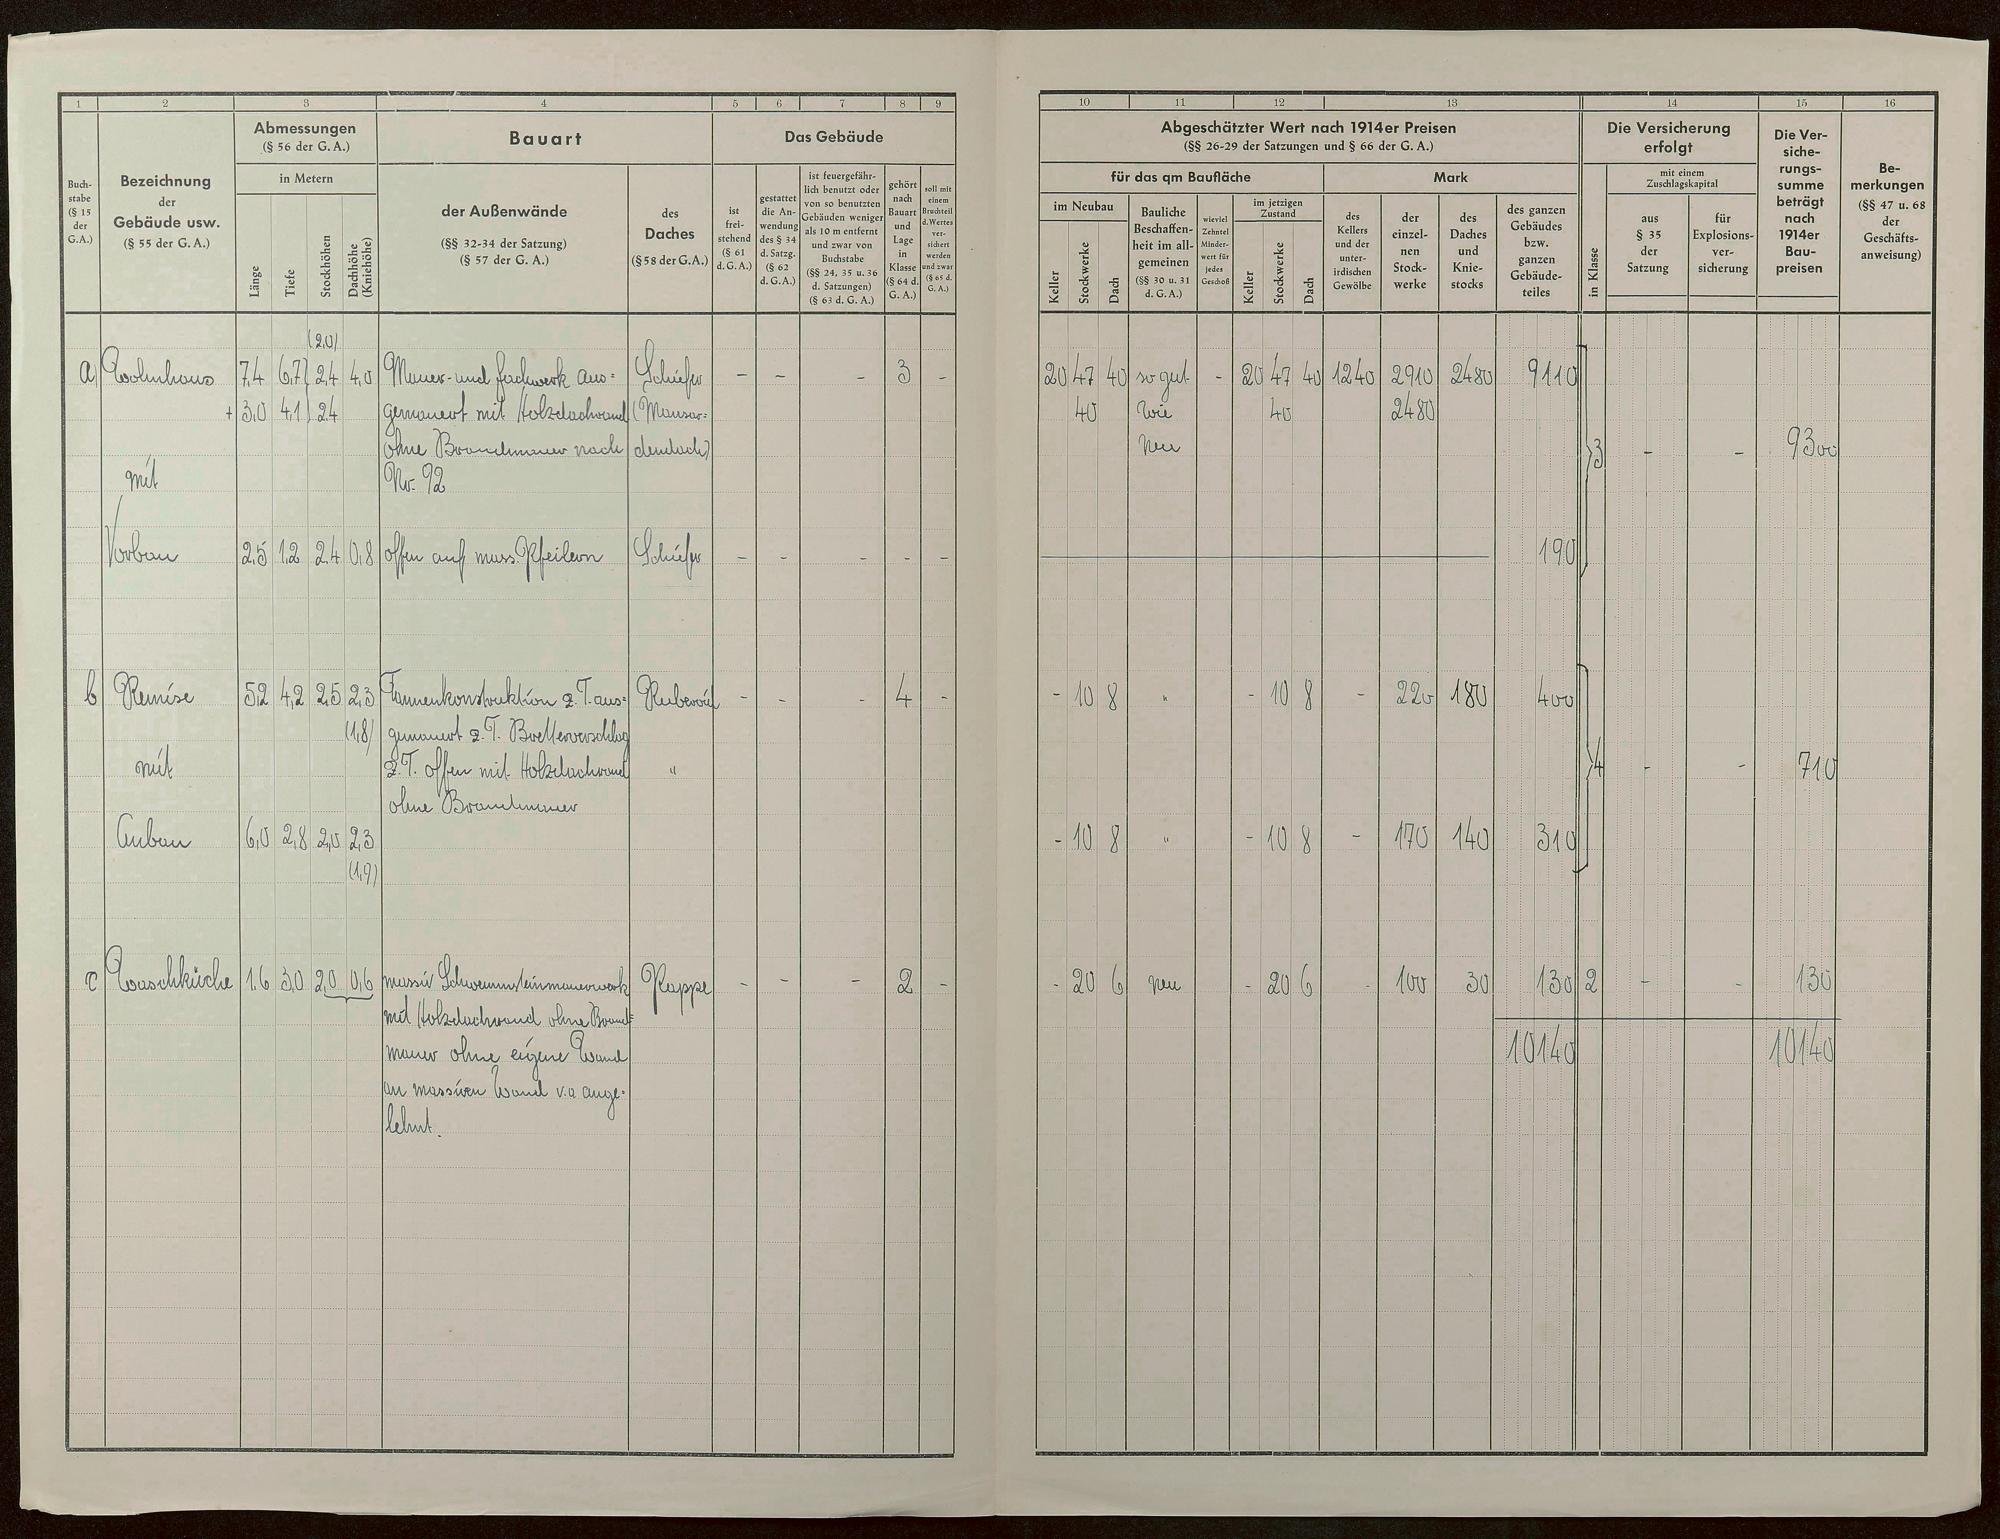 1 2 3 4 5 6 7 8 9
Buch-
stabe
(§ 15
der
G.A.)
Bezeichnung
der
Gebäude usw.
(§ 55 der G. A.)
Abmessungen
(§ 56 der G. A.)
in Metern
Länge
Tiefe
Stockhöhen
Dachhöhe
(Kniehöhe)
Bauart
der Außenwände
(§§ 32-34 der Satzung)
(§ 57 der G. A.)
des
Daches
(§ 58 der G. A.)
Das Gebäude
ist
frei-
stehend
(§ 61
d. G. A.)
gestattet
die An-
wendung
des § 34
d. Satzg.
(§ 62
d. G. A.)
ist feuergefähr-
lich benutzt oder
von so benutzten
Gebäuden weniger
als 10 m entfernt
und zwar von
Buchstabe
(§§ 24, 35 u. 36
d. Satzungen)
(§ 63 d. G. A.)
gehört
nach
Bauart
und
Lage
in
Klasse
(§ 64 d.
G. A.)
soll mit
einem
Bruchteil
d. Wertes
ver-
sichert
werden
und zwar
(§ 65 d.
G. A.)
(2,0)
a) Wohnhaus 7,4 6,7 2,4 4,0 Mauer- und Fachwerk aus= Schiefer - - - 3 -
+ 3,0 4,1 2,4 gemauert mit Holzdachwand (Mansar=
ohne Brandmauer nach dendach)
mit Nr. 92
Vorbau 2,5 1,2 2,4 0,8 offen auf mass. Pfeilern Schiefer - - - - -
b Remise 5,2 4,2 2,5 2,3 Tannenkonstruktion z. T. aus= Ruberoid - - - 4 -
(1,8) gemauert z. T. Bretterverschlag
mit z. T. offen mit Holzdachwand "
ohne Brandmauer
Anbau 6,0 2,8 2,0 2,3
(1,9)
c Waschküche 1,6 3,0 2,0 0,6 massiv Schwemmsteinmauerwerk Pappe - - - 2 -
mit Holzdachwand ohne Brand=
mauer ohne eigene Wand
an massiven Wand v. a ange=
lehnt.
10 11 12 13 14 15 16
Abgeschätzter Wert nach 1914er Preisen
(§§ 26-29 der Satzungen und § 66 der G. A.)
für das qm Baufläche
Mark
im Neubau
Keller
Stockwerke
Dach
Bauliche
Beschaffen-
heit im all-
gemeinen
(§§ 30 u. 31
d. G. A.)
wieviel
Zehntel
Minder-
wert für
jedes
Geschoß
im jetzigen
Zustand
Keller
Stockwerke
Dach
des
Kellers
und der
unter-
irdischen
Gewölbe
der
einzel-
nen
Stock-
werke
des
Daches
und
Knie-
stocks
des ganzen
Gebäudes
bzw.
ganzen
Gebäude-
teiles
Die Versicherung
erfolgt
in Klasse
mit einem
Zuschlagskapital
aus
§ 35
der
Satzung
für
Explosions-
ver-
sicherung
Die Ver-
siche-
rungs-
summe
beträgt
nach
1914er
Bau-
preisen
Be-
merkungen
(§§ 47 u. 68
der
Geschäfts-
anweisung)
20 47 40 so gut - 20 47 40 1240 2910 2480 9110
40 wie 40 2480
neu 3 - - 9300
190
- 10 8 " - 10 8 - 220 180 400
4 - - 710
- 10 8 " - 10 8 - 170 140 310
- 20 6 neu - 20 6 - 100 30 130 2 - - 130
10140 10140